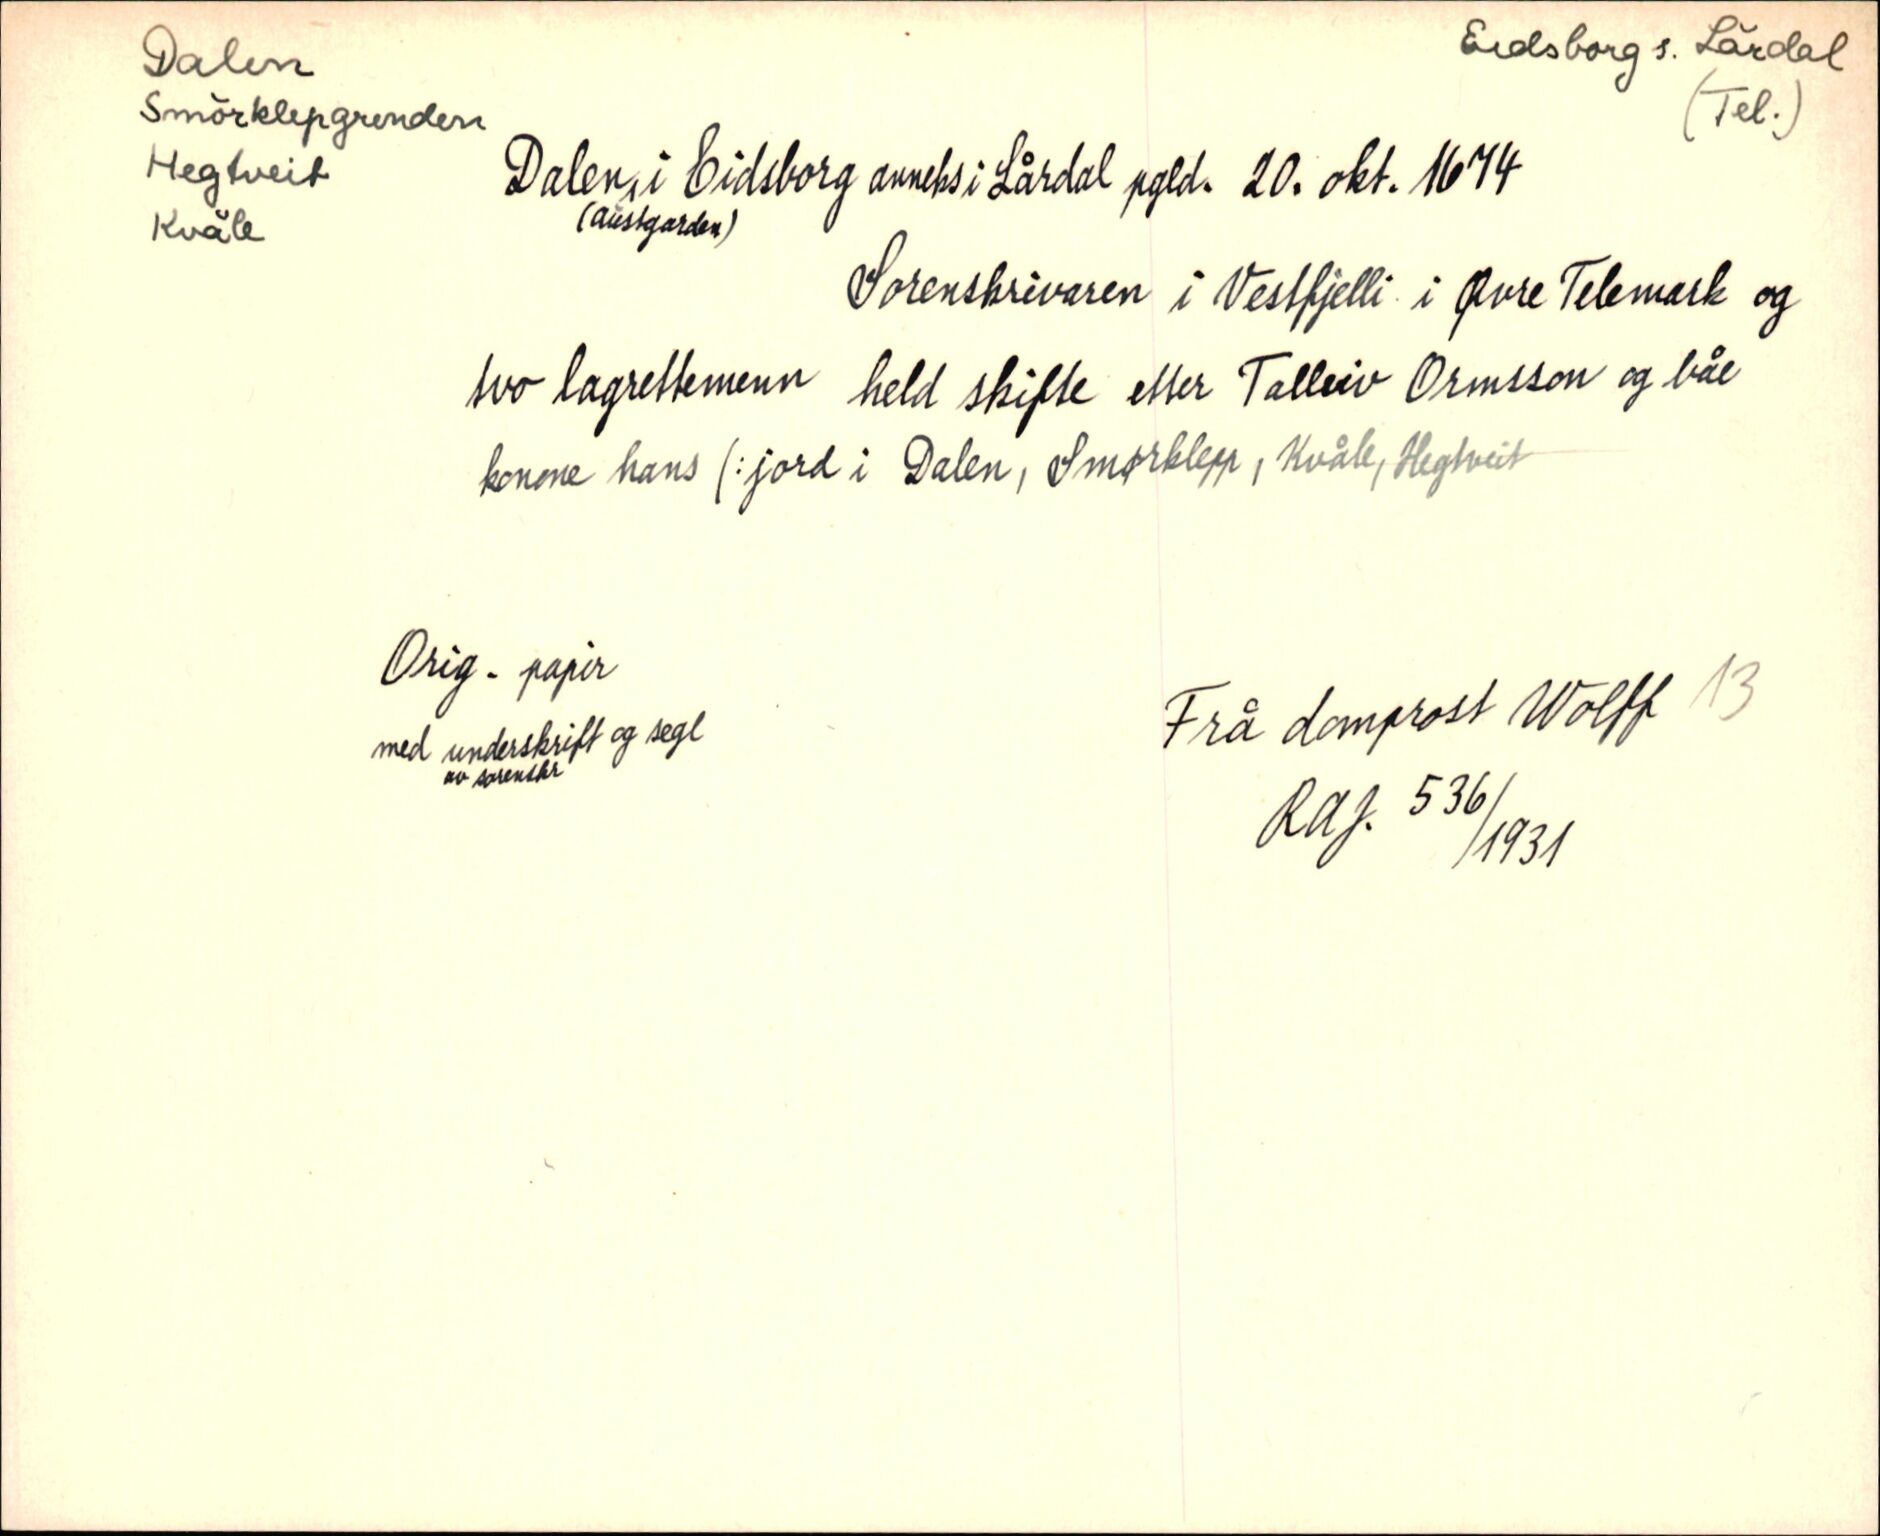 Dalen
Smörklepgrenden
Hegtveit
Kvåle
Eidsborg s. Lårdal
(Tel.)
Dalen, i Eidsborg anneks i Lårdal pgld. 20. okt. 1674
(Austgarden)
Sorenskrivaren i Vestfjelli i Øvre Telemark og
tvo lagrettemenn held skifte etter Talleiv Ormsson og båe
konone hans (: jord i Dalen, Smørklepp, Kvåle, Hegtveit
Orig - papir
med underskrift og segl
av sorenskr
Frå domprost Wolff 13
RAJ. 536/1931